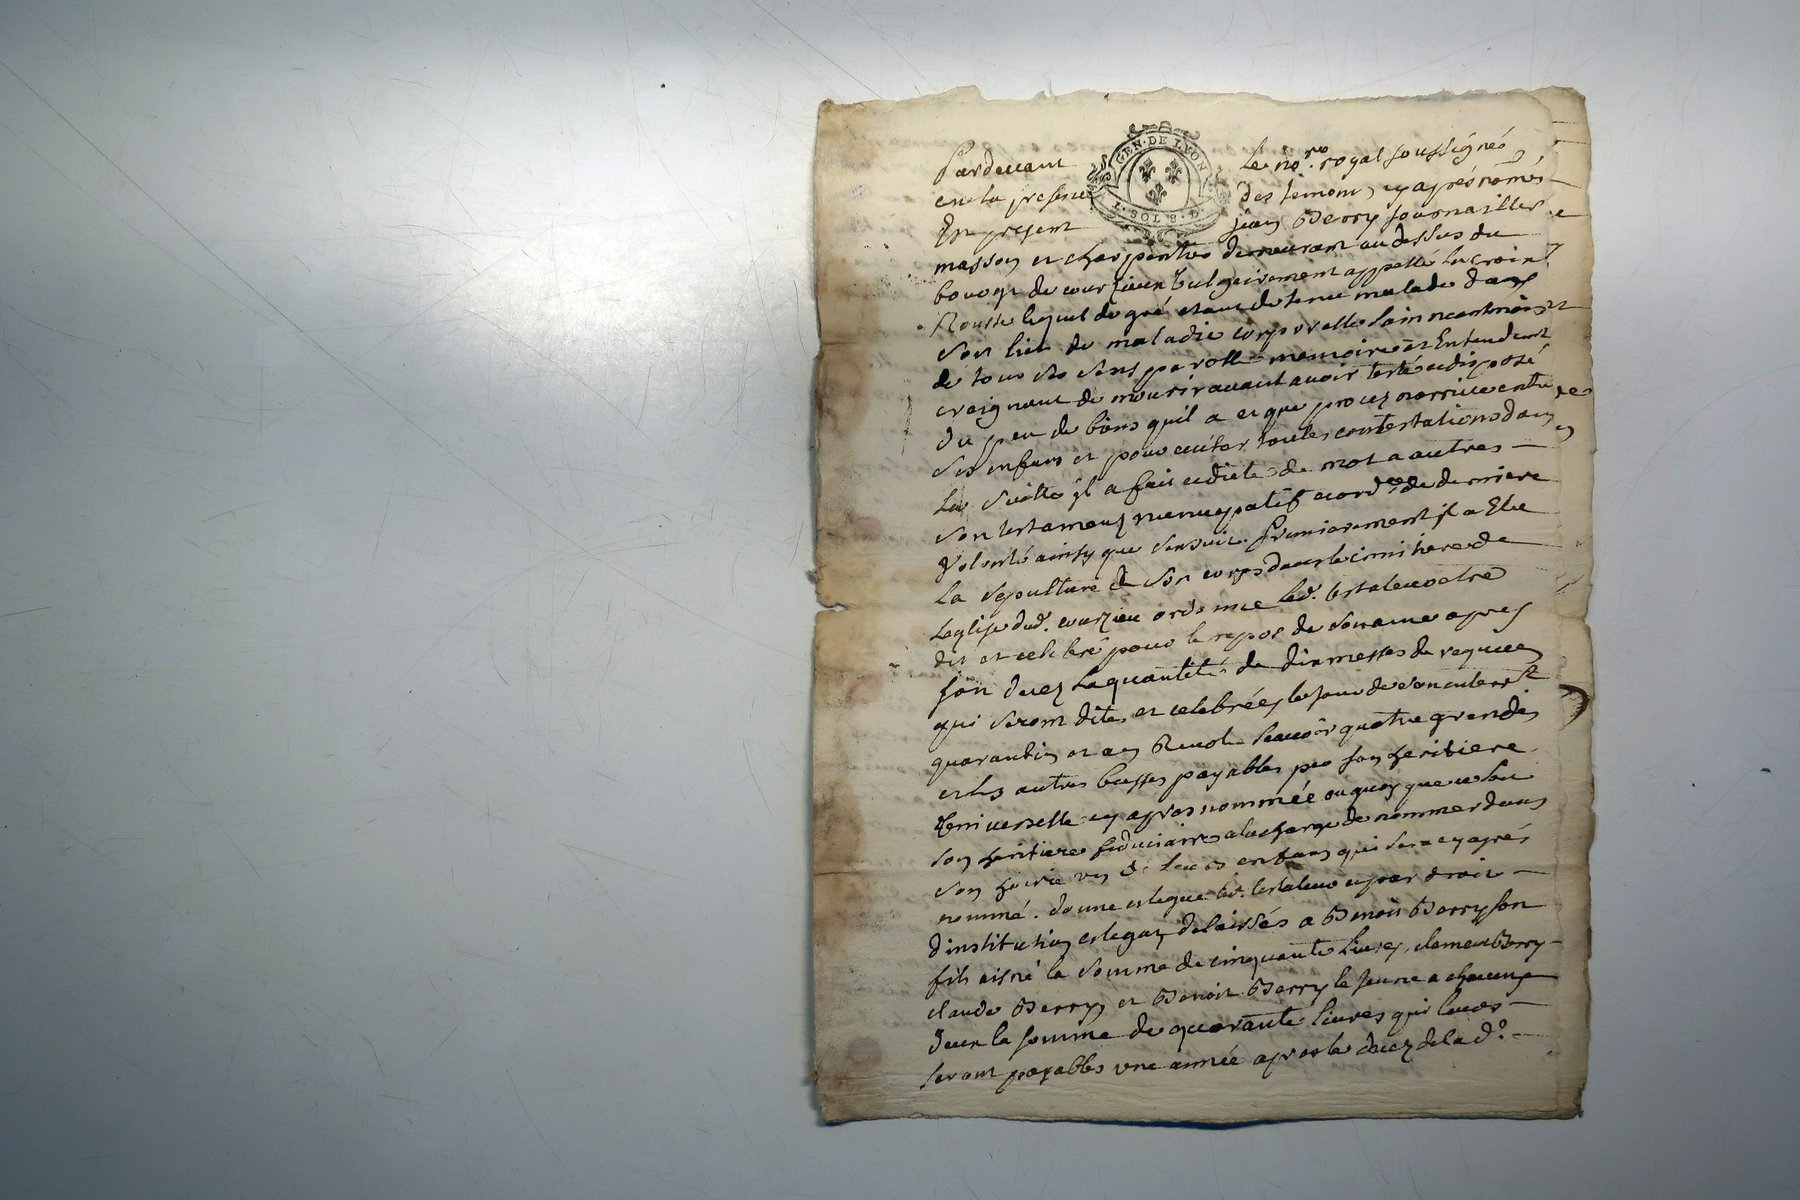 GEN·DE LYON
I·SOL 8·D
Pardevant le no.re royal soussigné
en la presence des temoins cy apres nommés
Est present jean Berry journaillier
masson et charpentier demeurant au dessus du
bourg de courzieu vulgairement appellé la croix
Rousse lequel de gré etant detenu malade dans
son lict de maladie corporelle sain neantmoins
de tous ses sens parolle memoire et Entendement
craignant de mourir avant avoir testé et disposé
du peu de biens quil a et que procez narrive entre
ses enfans et pour eviter toutes contestations dans
la suitte il a fait et dicté de mot a autres
son testament nuncupatif et ord.ce de derniere
volonté ainsy que sensuit. Premierement il a Elu
la sepulture de son corps dans le cimitiere de
Leglise dud. courzieu ordonne led. testateur etre
dit et celebré pour le repos de son ame apres
son decez la quantité de dix messes de requiem
qui seront dites et celebrées le jour de son enterrt
quarantin et an Revolu scavoir quatre grandes
et les autres basses payables par son heritiere
Universelle cy apres nommée ou quoy que ce soit
son heritiere fiduciaire a la charge de nommer dans
son hoirie un de leurs enfans qui sera cy apres
nommé. donne et legue led. testateur et par droit
dinstitution et legat delaissés a Benoit Berry son
fils aisné la somme de cinquante livres, clement Berry
claude Berry et Benoit Berry le jeune a chacun
deux la somme de quarante livres qui leurs
seront payables une année apres le decez de lad.e